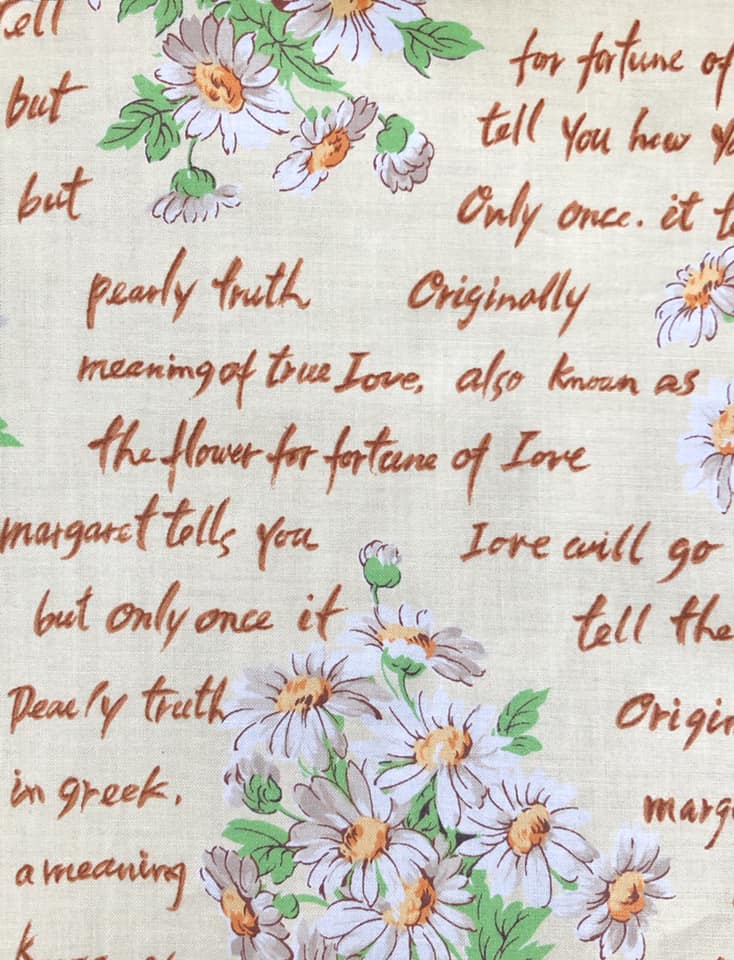 tell
for fortune of
but
tell you how
but
Only once. it
pearly truth Originally
meaning of true Love, also known as
the flower for fortune of Love
margaret tells you Love will go
but only once it
tell the
Pearly truth
Origin
in greek.
marg
a meaning